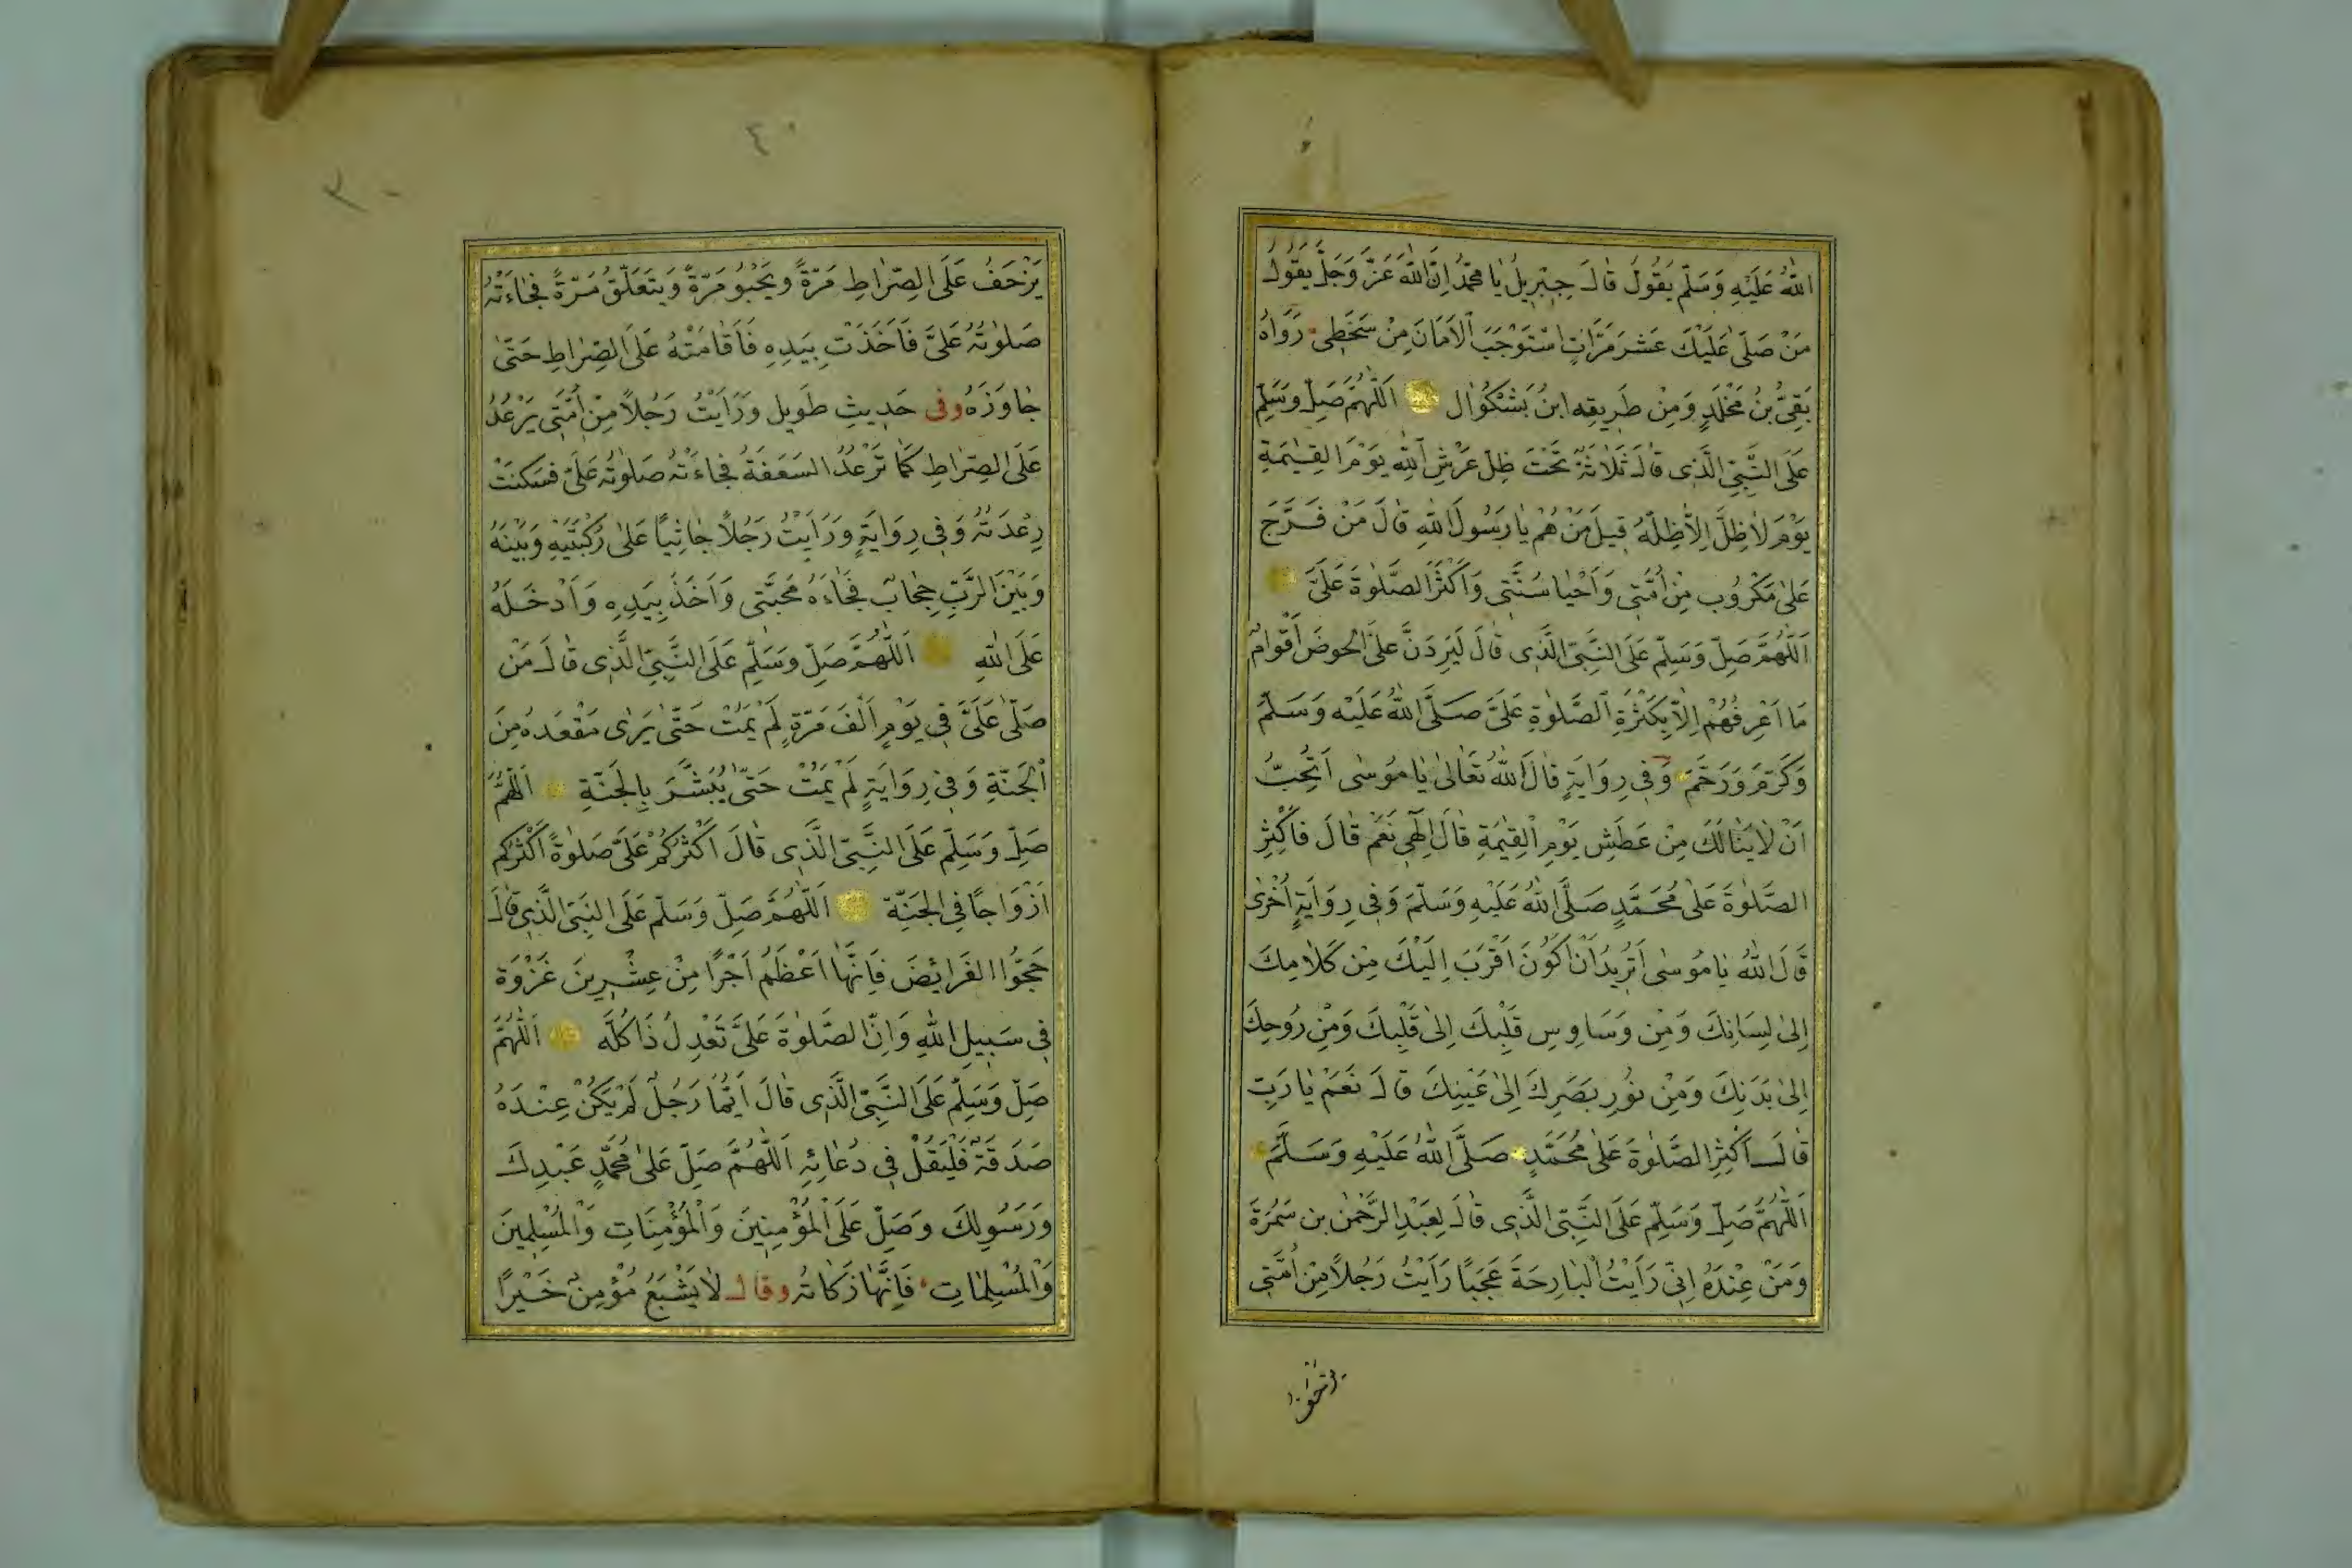 اللّٰهُ عَلَيْهِ وَسَلَّمَ يَقُولُ قَالَ جِبْرِيلُ يَا مُحَمَّدُ اِنَّ اللّٰهَ عَزَّ وَجَلَّ يَقُولُ
مَنْ صَلّٰى عَلَيْكَ عَشَرَ مَرَّاتٍ اسْتَوْجَبَ الْاَمَانَ مِنْ سَخَطِى رَوَاهُ
بَقِىُّ بْنُ مَخْلَدٍ وَمِنْ طَرِيقِهِ ابْنُ بَشْكُوَال اَللّٰهُمَّ صَلِّ وَسَلِّمْ
عَلَى النَّبِىِّ الَّذِى قَالَ ثَلَاثَةٌ تَحْتَ ظِلِّ عَرْشِ اللّٰهِ يَوْمَ الْقِيٰمَةِ
يَوْمَ لَا ظِلَّ اِلَّا ظِلُّهُ قِيلَ مَنْ هُمْ يَا رَسُولَ اللّٰهِ قَالَ مَنْ فَرَّجَ
عَلٰى مَكْرُوبٍ مِنْ اُمَّتِى وَاَحْيَا سُنَّتِى وَاَكْثَرَ الصَّلٰوةَ عَلَىَّ
اَللّٰهُمَّ صَلِّ وَسَلِّمْ عَلَى النَّبِىِّ الَّذِى قَالَ لَيَرِدَنَّ عَلَىَّ الْحَوْضَ اَقْوَامٌ
مَا اَعْرِفُهُمْ اِلَّا بِكَثْرَةِ الصَّلٰوةِ عَلَىَّ صَلَّى اللّٰهُ عَلَيْهِ وَسَلَّمَ
وَكَرَّمَ وَرَحَّمَ وَفِى رِوَايَةٍ قَالَ اللّٰهُ تَعَالٰى يَا مُوسٰى اَتُحِبُّ
اَنْ لَا يَنَالَكَ مِنْ عَطَشِ يَوْمِ الْقِيٰمَةِ قَالَ اِلٰهِى نَعَمْ قَالَ فَاَكْثِرِ
الصَّلٰوةَ عَلٰى مُحَمَّدٍ صَلَّى اللّٰهُ عَلَيْهِ وَسَلَّمَ وَفِى رِوَايَةٍ اُخْرٰى
قَالَ اللّٰهُ يَا مُوسٰى اَتُرِيدُ اَنْ اَكُونَ اَقْرَبَ اِلَيْكَ مِنْ كَلَامِكَ
اِلٰى لِسَانِكَ وَمِنْ وَسَاوِسِ قَلْبِكَ اِلٰى قَلْبِكَ وَمِنْ رُوحِكَ
اِلٰى بَدَنِكَ وَمِنْ نُورِ بَصَرِكَ اِلٰى عَيْنِكَ قَالَ نَعَمْ يَا رَبِّ
قَالَ اَكْثِرِ الصَّلٰوةَ عَلٰى مُحَمَّدٍ صَلَّى اللّٰهُ عَلَيْهِ وَسَلَّمَ
اَللّٰهُمَّ صَلِّ وَسَلِّمْ عَلَى النَّبِىِّ الَّذِى قَالَ لِعَبْدِ الرَّحْمٰنِ بن سَمُرَةَ
وَمَنْ عِنْدَهُ اِنِّى رَاَيْتُ الْبَارِحَةَ عَجَبًا رَاَيْتُ رَجُلًا مِنْ اُمَّتِى
يزحف
٤٠
يَزْحَفُ عَلَى الصِّرَاطِ مَرَّةً وَيَحْبُو مَرَّةً وَيَتَعَلَّقُ مَرَّةً فَجَاءَتْهُ
صَلٰوتُهُ عَلَىَّ فَاَخَذَتْ بِيَدِهِ فَاَقَامَتْهُ عَلَى الصِّرَاطِ حَتّٰى
جَاوَزَهُ وفى حَدِيثٍ طَوِيلٍ وَرَاَيْتُ رَجُلًا مِنْ اُمَّتِى يَرْعُدُ
عَلَى الصِّرَاطِ كَمَا تَرْعُدُ السَعَفَةُ فَجَاءَتْهُ صَلٰوتُهُ عَلَىَّ فَسَكَنَتْ
رِعْدَتُهُ وَفِى رِوَايَةٍ وَرَاَيْتُ رَجُلًا جَاثِيًا عَلٰى رُكْبَتَيْهِ وَبَيْنَهُ
وَبَيْنَ الرَّبِّ حِجَابٌ فَجَاءَهُ مَحَبَّتِى وَاَخَذَ بِيَدِهِ وَاَدْخَلَهُ
عَلَى اللّٰهِ اَللّٰهُمَّ صَلِّ وَسَلِّمْ عَلَى النَّبِىِّ الَّذِى قَالَ مَنْ
صَلّٰى عَلَىَّ فِى يَوْمٍ اَلْفَ مَرَّةٍ لَمْ يَمُتْ حَتّٰى يَرٰى مَقْعَدَهُ مِنَ
الْجَنَّةِ وَفِى رِوَايَةٍ لَمْ يَمُتْ حَتّٰى يُبَشَّرَ بِالْجَنَّةِ اَللّٰهُمَّ
صَلِّ وَسَلِّمْ عَلَى النَّبِىِّ الَّذِى قَالَ اَكْثَرُكُمْ عَلَىَّ صَلٰوةً اَكْثَرُكُمْ
اَزْوَاجًا فِى الْجَنَّةِ اَللّٰهُمَّ صَلِّ وَسَلِّمْ عَلَى النَّبِىِّ الَّذِى قَالَ
حَجُّوا الْفَرَائِضَ فَاِنَّهَا اَعْظَمُ اَجْرًا مِنْ عِشْرِينَ غَزْوَةً
فِى سَبِيلِ اللّٰهِ وَاِنَّ الصَّلٰوةَ عَلَىَّ تَعْدِلُ ذَا كُلَّهُ اَللّٰهُمَّ
صَلِّ وَسَلِّمْ عَلَى النَّبِىِّ الَّذِى قَالَ اَيُّمَا رَجُلٌ لَمْ يَكُنْ عِنْدَهُ
صَدَقَةٌ فَلْيَقُلْ فِى دُعَائِهِ اَللّٰهُمَّ صَلِّ عَلٰى مُحَمَّدٍ عَبْدِكَ
وَرَسُولِكَ وَصَلِّ عَلَى الْمُؤْمِنِينَ وَالْمُؤْمِنَاتِ وَالْمُسْلِمِينَ
وَالْمُسْلِمَاتِ فَاِنَّهَا زَكَاتُهُ وقال لَا يَشْبَعُ مُؤْمِنٌ خَيْرًا